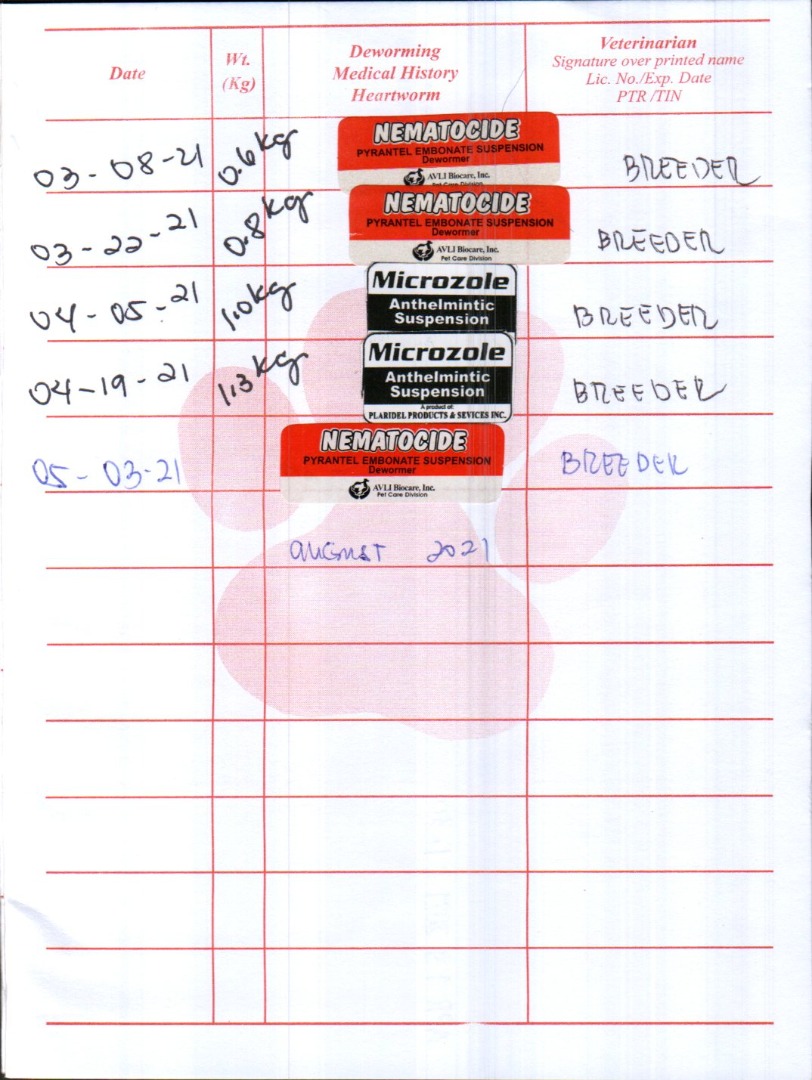 Date
Wt.
(Kg)
Deworming
Medical History
Heartworm
Veterinarian
Signature over printed name
Lic. No./Exp. Date
PTR /TIN
03-08-21 0.6kg
NEMATOCIDE
PYRANTEL EMBONATE SUSPENSION
Dewormer
AVLI Biocare, Inc.
Pet Care Division
BREEDER
03-22-21 0.8kg
NEMATOCIDE
PYRANTEL EMBONATE SUSPENSION
Dewormer
AVLI Biocare, Inc.
Pet Care Division
BREEDER
04-05-21 1.0kg
Microzole
Anthelmintic
Suspension
BREEDER
04-19-21 1.3kg
Microzole
Anthelmintic
Suspension
A product of:
PLARIDEL PRODUCTS & SEVICES INC.
BREEDER
05-03-21
NEMATOCIDE
PYRANTEL EMBONATE SUSPENSION
Dewormer
AVLI Biocare, Inc.
Pet Care Division
BREEDER
AUGUST 2021